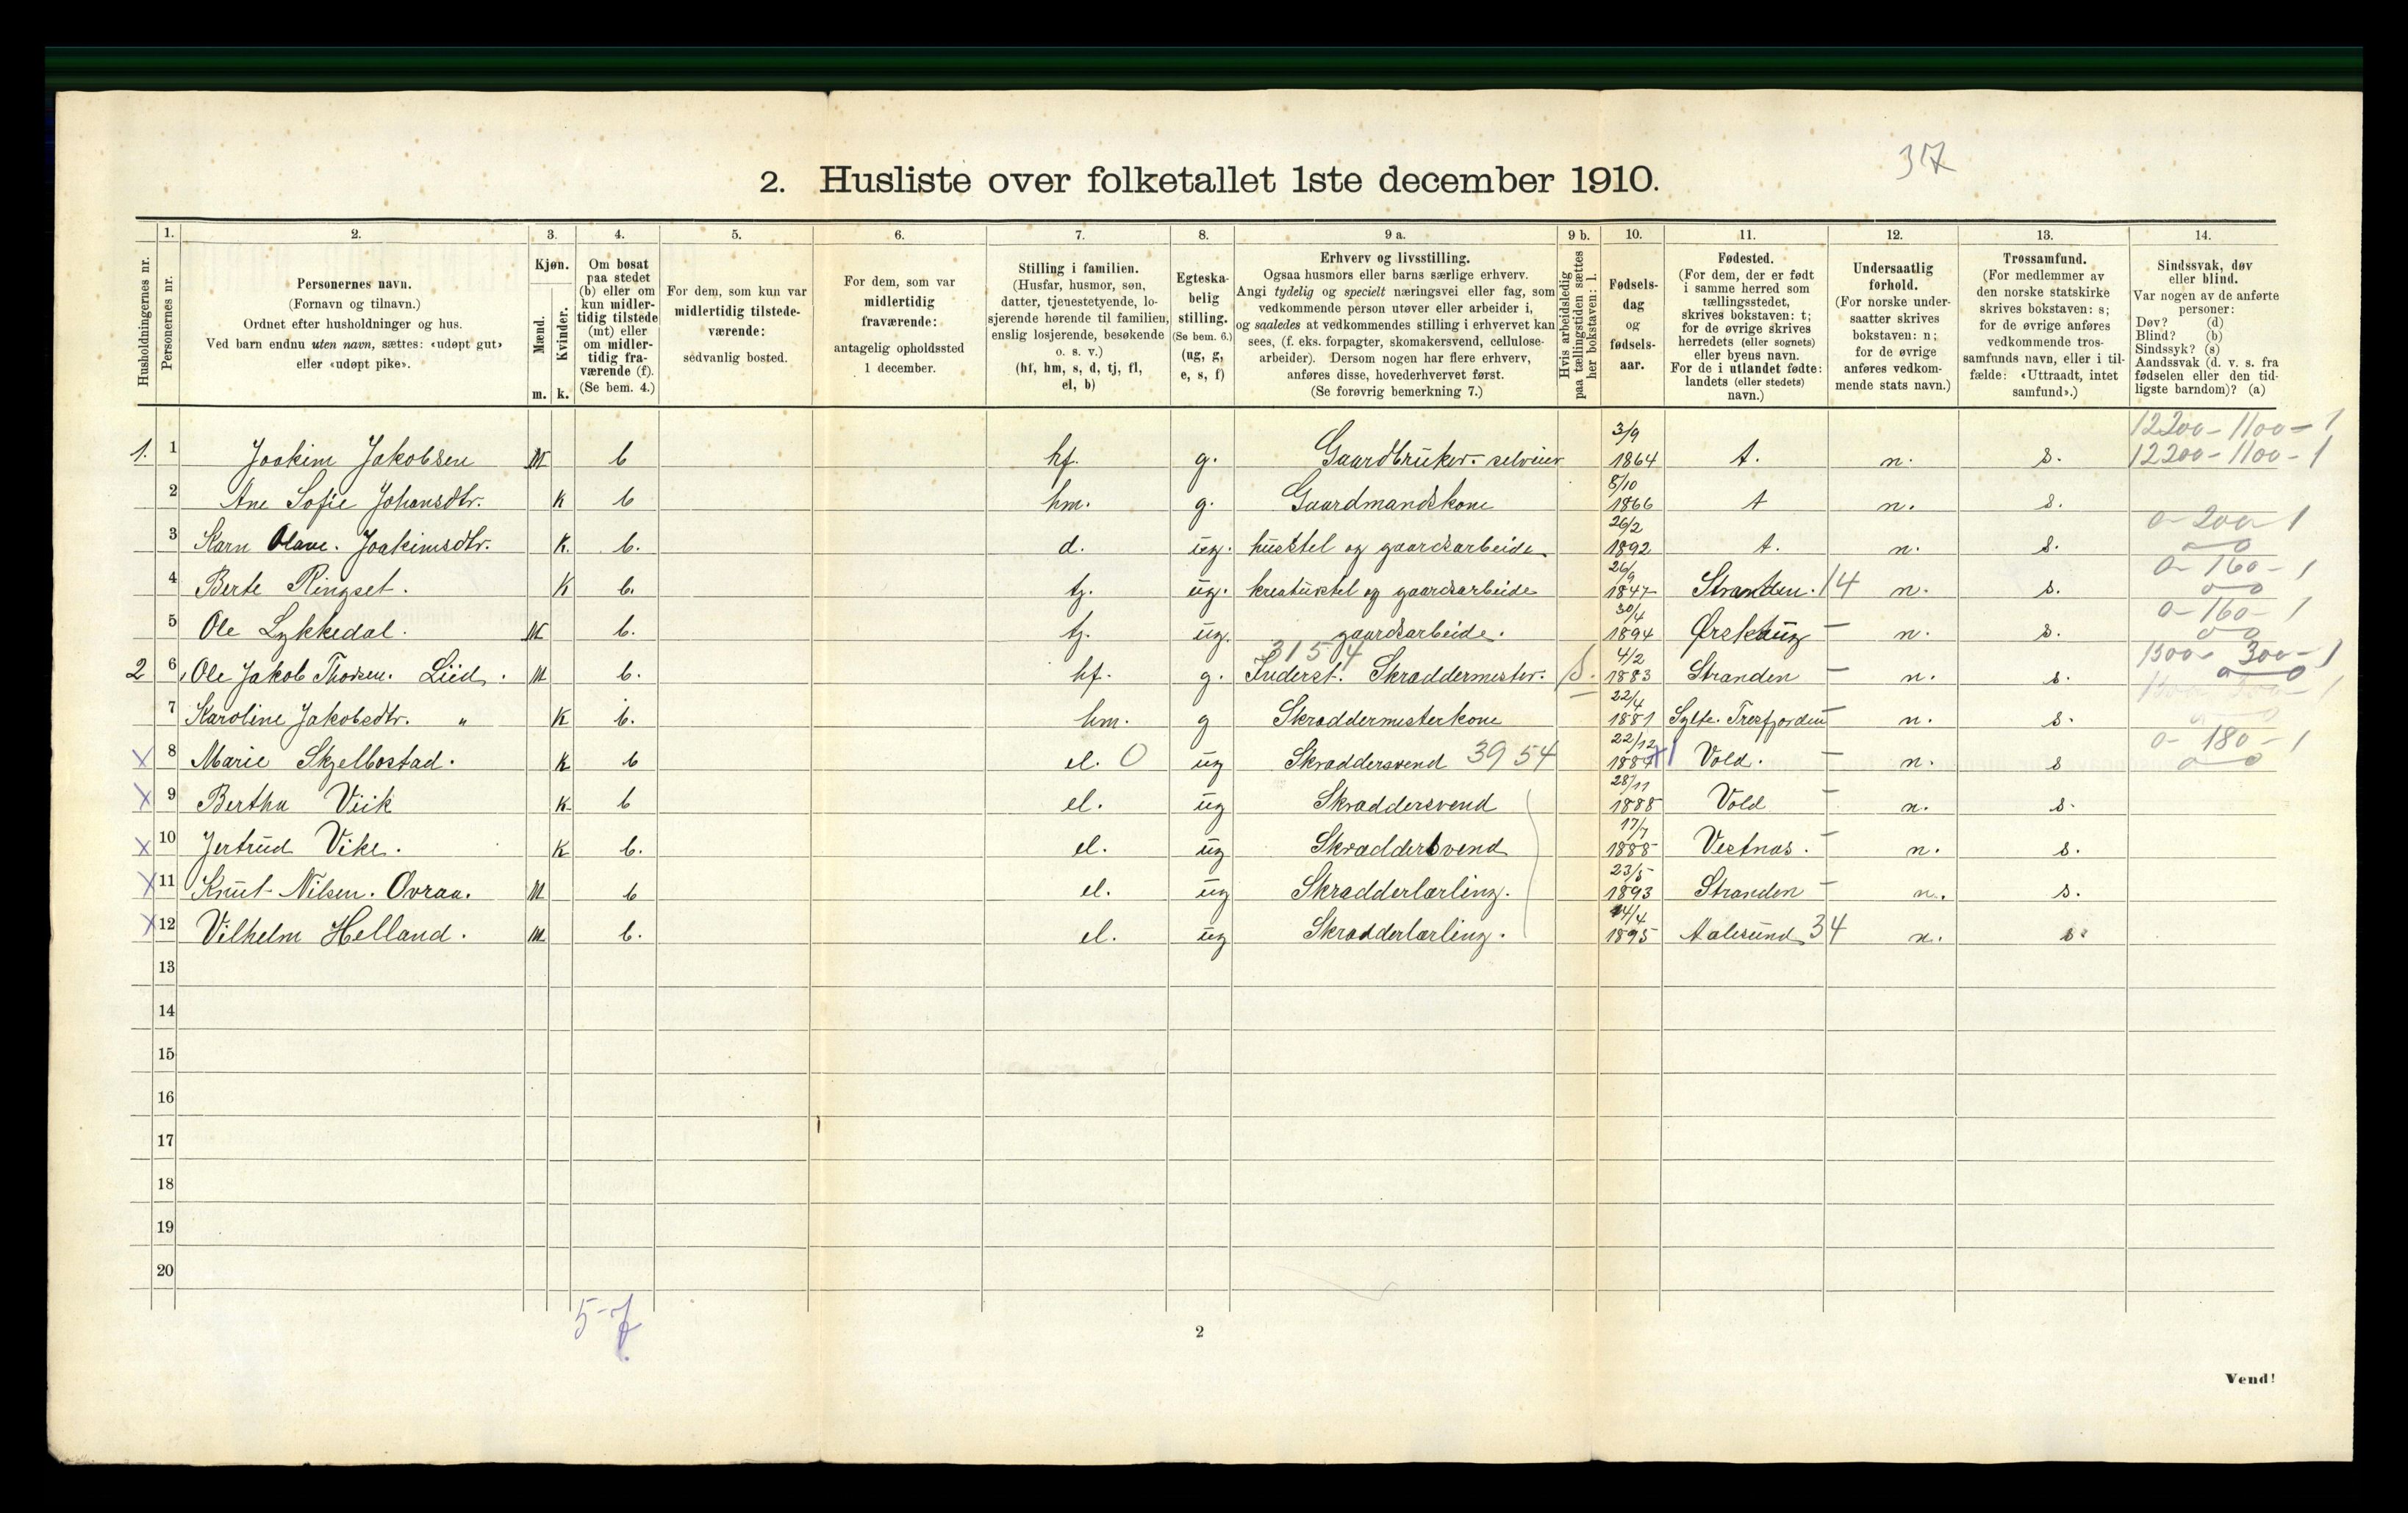 37
2. Husliste over folketallet 1ste december 1910.
Husholdningernes nr.
1. Personernes nr.
2. Personernes navn.
(Fornavn og tilnavn.)
Ordnet efter husholdninger og hus.
Ved barn endnu uten navn, sættes: «udøpt gut»
eller «udøpt pike».
3. Kjøn.
Mænd. m.
Kvinder. k.
4. Om bosat
paa stedet
(b) eller om
kun midler-
tidig tilstede
(mt) eller
om midler-
tidig fra-
værende (f).
(Se bem. 4.)
5. For dem, som kun var
midlertidig tilstede-
værende:
sedvanlig bosted.
6. For dem, som var
midlertidig
fraværende:
antagelig opholdssted
1 december.
7. Stilling i familien.
(Husfar, husmor, søn,
datter, tjenestetyende, lo-
sjerende hørende til familien,
enslig losjerende, besøkende
o. s. v.)
(hf, hm, s, d, tj, fl,
el, b)
8. Egteska-
belig
stilling.
(Se bem. 6.)
(ug, g,
e, s, f)
9 a. Erhverv og livsstilling.
Ogsaa husmors eller barns særlige erhverv.
Angi tydelig og specielt næringsvei eller fag, som
vedkommende person utøver eller arbeider i,
og saaledes at vedkommendes stilling i erhvervet kan
sees, (f. eks. forpagter, skomakersvend, cellulose-
arbeider). Dersom nogen har flere erhverv,
anføres disse, hovederhvervet først.
(Se forøvrig bemerkning 7.)
9 b. Hvis arbeidsledig
paa tællingstiden sættes
her bokstaven: l.
10. Fødsels-
dag
og
fødsels-
aar.
11. Fødested.
(For dem, der er født
i samme herred som
tællingsstedet,
skrives bokstaven: t;
for de øvrige skrives
herredets (eller sognets)
eller byens navn.
For de i utlandet fødte:
landets (eller stedets)
navn.)
12. Undersaatlig
forhold.
(For norske under-
saatter skrives
bokstaven: n;
for de øvrige
anføres vedkom-
mende stats navn.)
13. Trossamfund.
(For medlemmer av
den norske statskirke
skrives bokstaven: s;
for de øvrige anføres
vedkommende tros-
samfunds navn, eller i til-
fælde: «Uttraadt, intet
samfund».)
14. Sindssvak, døv
eller blind.
Var nogen av de anførte
personer:
Døv? (d)
Blind? (b)
Sindssyk? (s)
Aandssvak (d. v. s. fra
fødselen eller den tid-
ligste barndom)? (a)
12200-1100-1
1. 1 Joakim Jakobsen M b hf. g. Gaardbruker- selveier 3/9 1864 t. n. s. 12200-1100-1
2 Ane Sofie Johansdtr. K b hm. g. Gaardmandskone 8/10 1866 t n. s.
3 Karn Olave. Joakimsdtr. K. b. d. ug. husstel og gaardsarbeide 26/2 1892 t. n. s. 0-200-1
4 Berte Ringset. K b. tj. ug. kreaturstel og gaardsarbeide 26/9 1847 Stranden. 14 n. s. 0-160-1
5 Ole Lykkedal. M b. tj. ug. gaardsarbeide. 30/4 1894 Ørskaug - n. s. 0-160-1
31 5 4
2 6 Ole Jakob Thorsen. Liid. M b. hf. g. Inderst. Skræddermester. S. 4/2 1883 Stranden - n. s. 1500- 300-1
7 Karoline Jakobsdtr. " K b. hm. g Skræddermesterkone 22/4 1881 Sylte. Tresfjorden - n. s.
X 8 Marie Skjelbostad. K b el. 0 ug Skræddersvend 39 54 22/12 Vold. - n. s 0- 180-1
X 9 Bertha Viik K b el. ug Skræddersvend 28/11 1888 Vold - n. s.
X 10 Jertrud Vike. K b. el. ug Skræddersvend 17/7 1888 Vestnæs. - n. s.
X 11 Knut Nilsen. Ovraa. M b el. ug Skrædderlærling. 23/5 1893 Stranden - n. s.
X 12 Vilhelm Helland. M b. el. ug Skrædderlærling. 14/4 1895 Aalesund 34 n. s.
13
14
15
16
17
18
19
20
5-7
2
Vend!